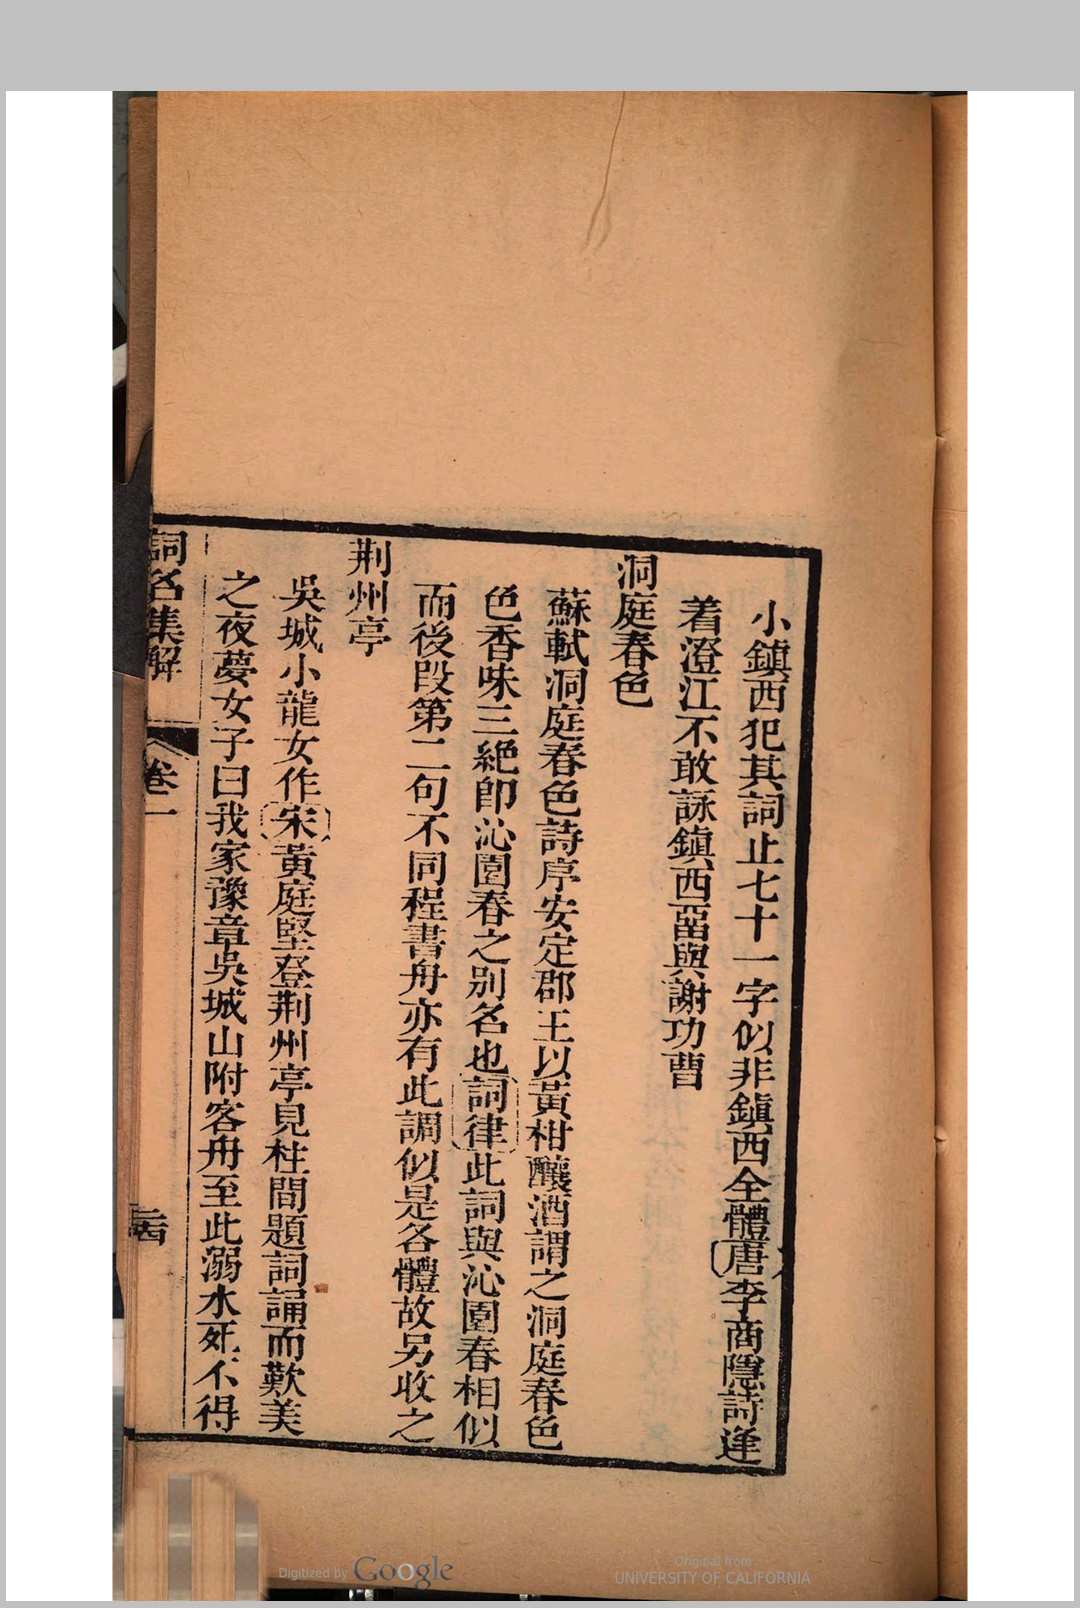 小鎮西犯其詞止七十一字似非鎮西全體唐李商隱詩逢
着澄江不敢詠鎮西畱與謝功曹
洞庭春色
蘇軾洞庭春色詩序安定郡王以黃柑釀酒謂之洞庭春色
色香味三絕卽沁園春之别名也詞律此詞與沁園春相似
而後段第二句不同程書舟亦有此調似是各體故另收之
荆州亭
吳城小龍女作宋黃庭堅登荆州亭見柱間題詞誦而歎美
之夜夢女子曰我家豫章吳城山附客舟至此溺水死不得
詞名集解
卷一
Digitized by Google
Original from
UNIVERSITY OF CALIFORNIA